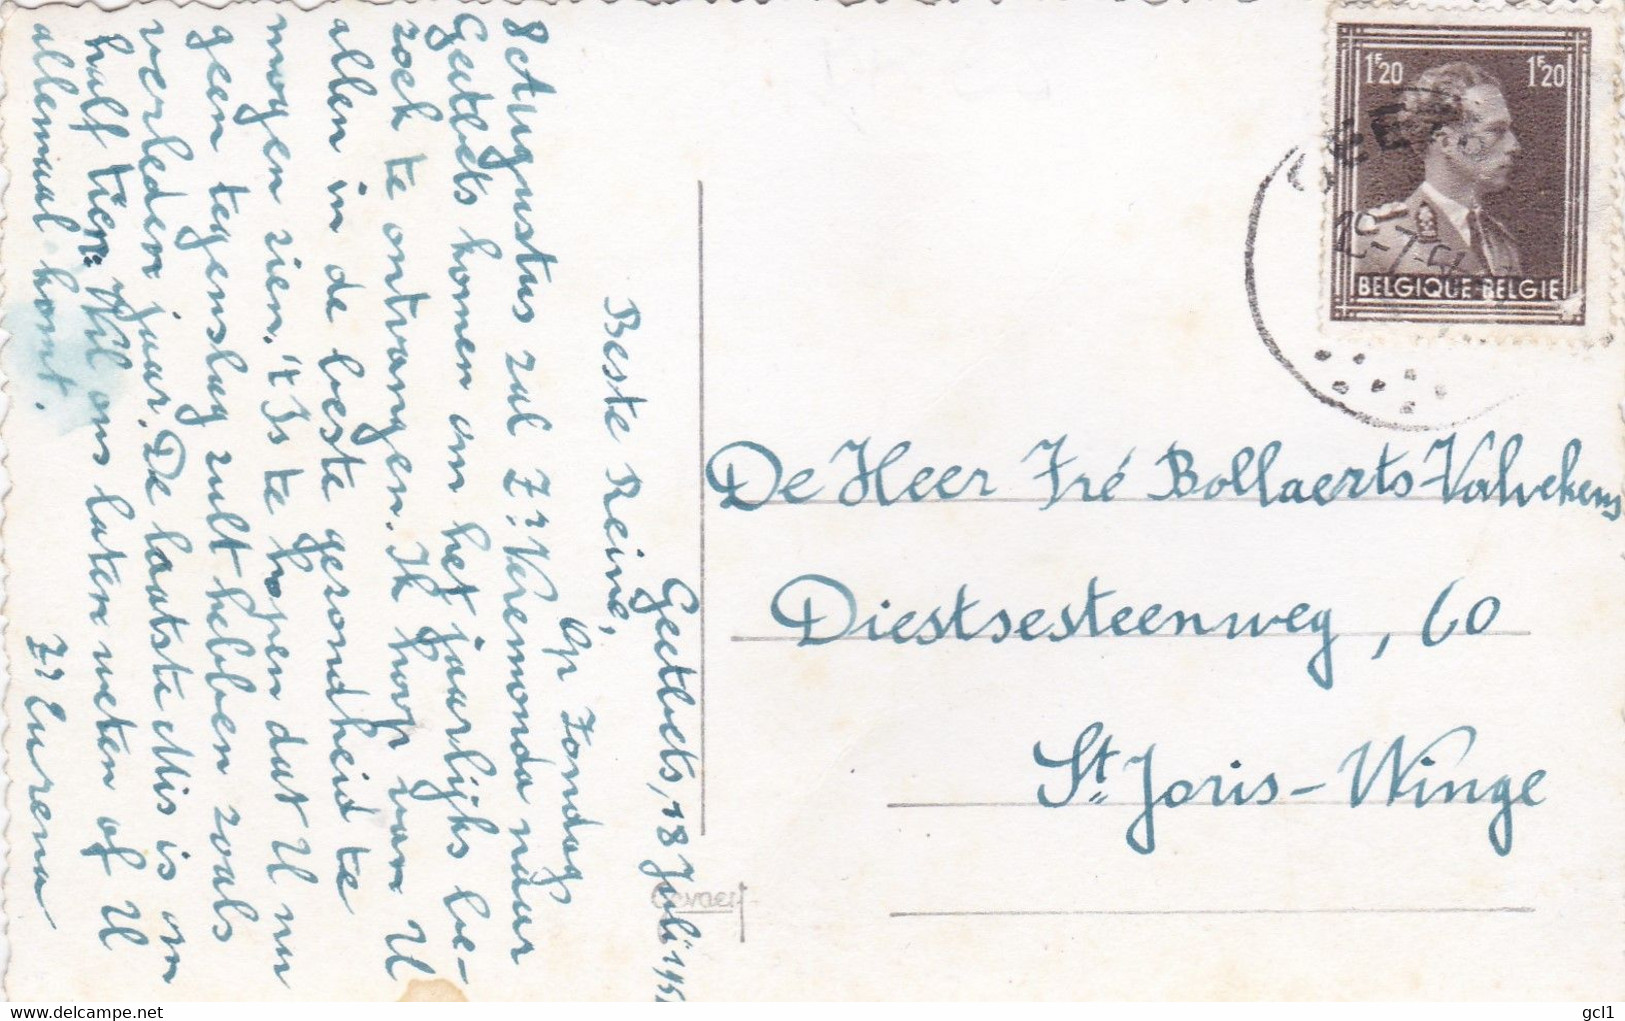 Geetbets, 18 Juli 195
Beste Reine,
Op Zondag
8 Augustus zul Z.r Veremonda naar
Geetbets komen om het jaarlijks be-
zoek te ontvangen. Ik hoop van U
allen in de beste gezondheid te
mogen zien. 't Is te hopen dat U nu
geen tegenslag zult hebben zoals
verleden jaar. De laatste Mis is om
half tien. Wil ons laten weten of U
allemaal komt.
Z.r Eurena
1F20 1F20
BELGIQUE-BELGIE
De Heer Fré Bollaerts-Valvekens
Diestsesteenweg, 60
St. Joris-Winge
Gevaert
delcampe.net
gcl1